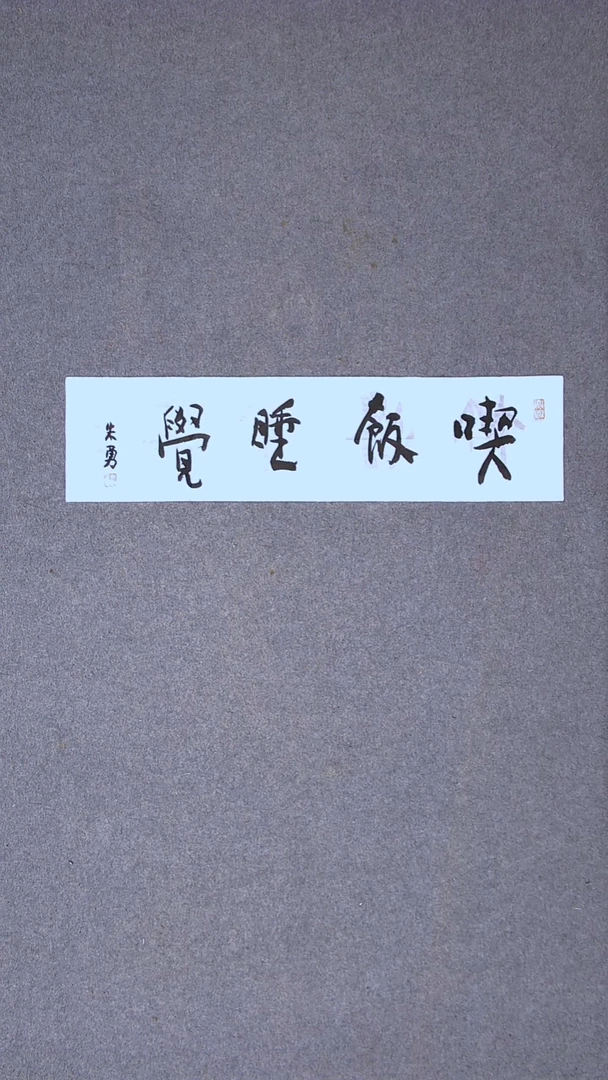 喫飯睡覺
朱勇